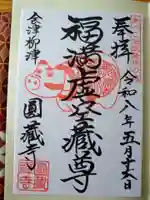 奉拝
令和八年五月十六日
福満虚空蔵尊
会津柳津
圓藏寺